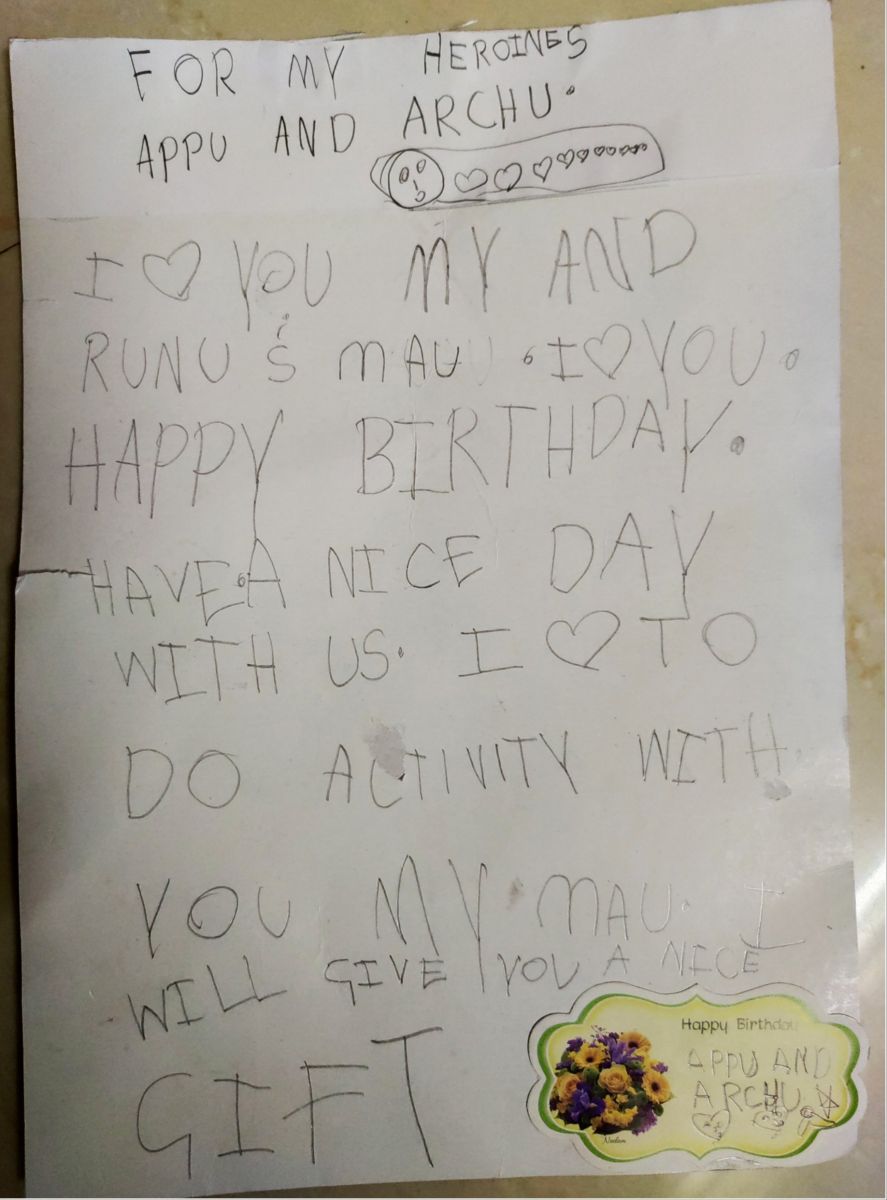 FOR MY HEROINES
APPU AND ARCHU.
I ♡ YOU MY AND
RUNU'S MAU .I ♡ YOU.
HAPPY BIRTHDAY.
HAVE.A NICE DAY
WITH US. I ♡ TO
DO ACTIVITY WITH
YOU MY MAU. I
WILL GIVE YOU A NICE
GIFT
Happy Birthday
APPU AND
ARCHU